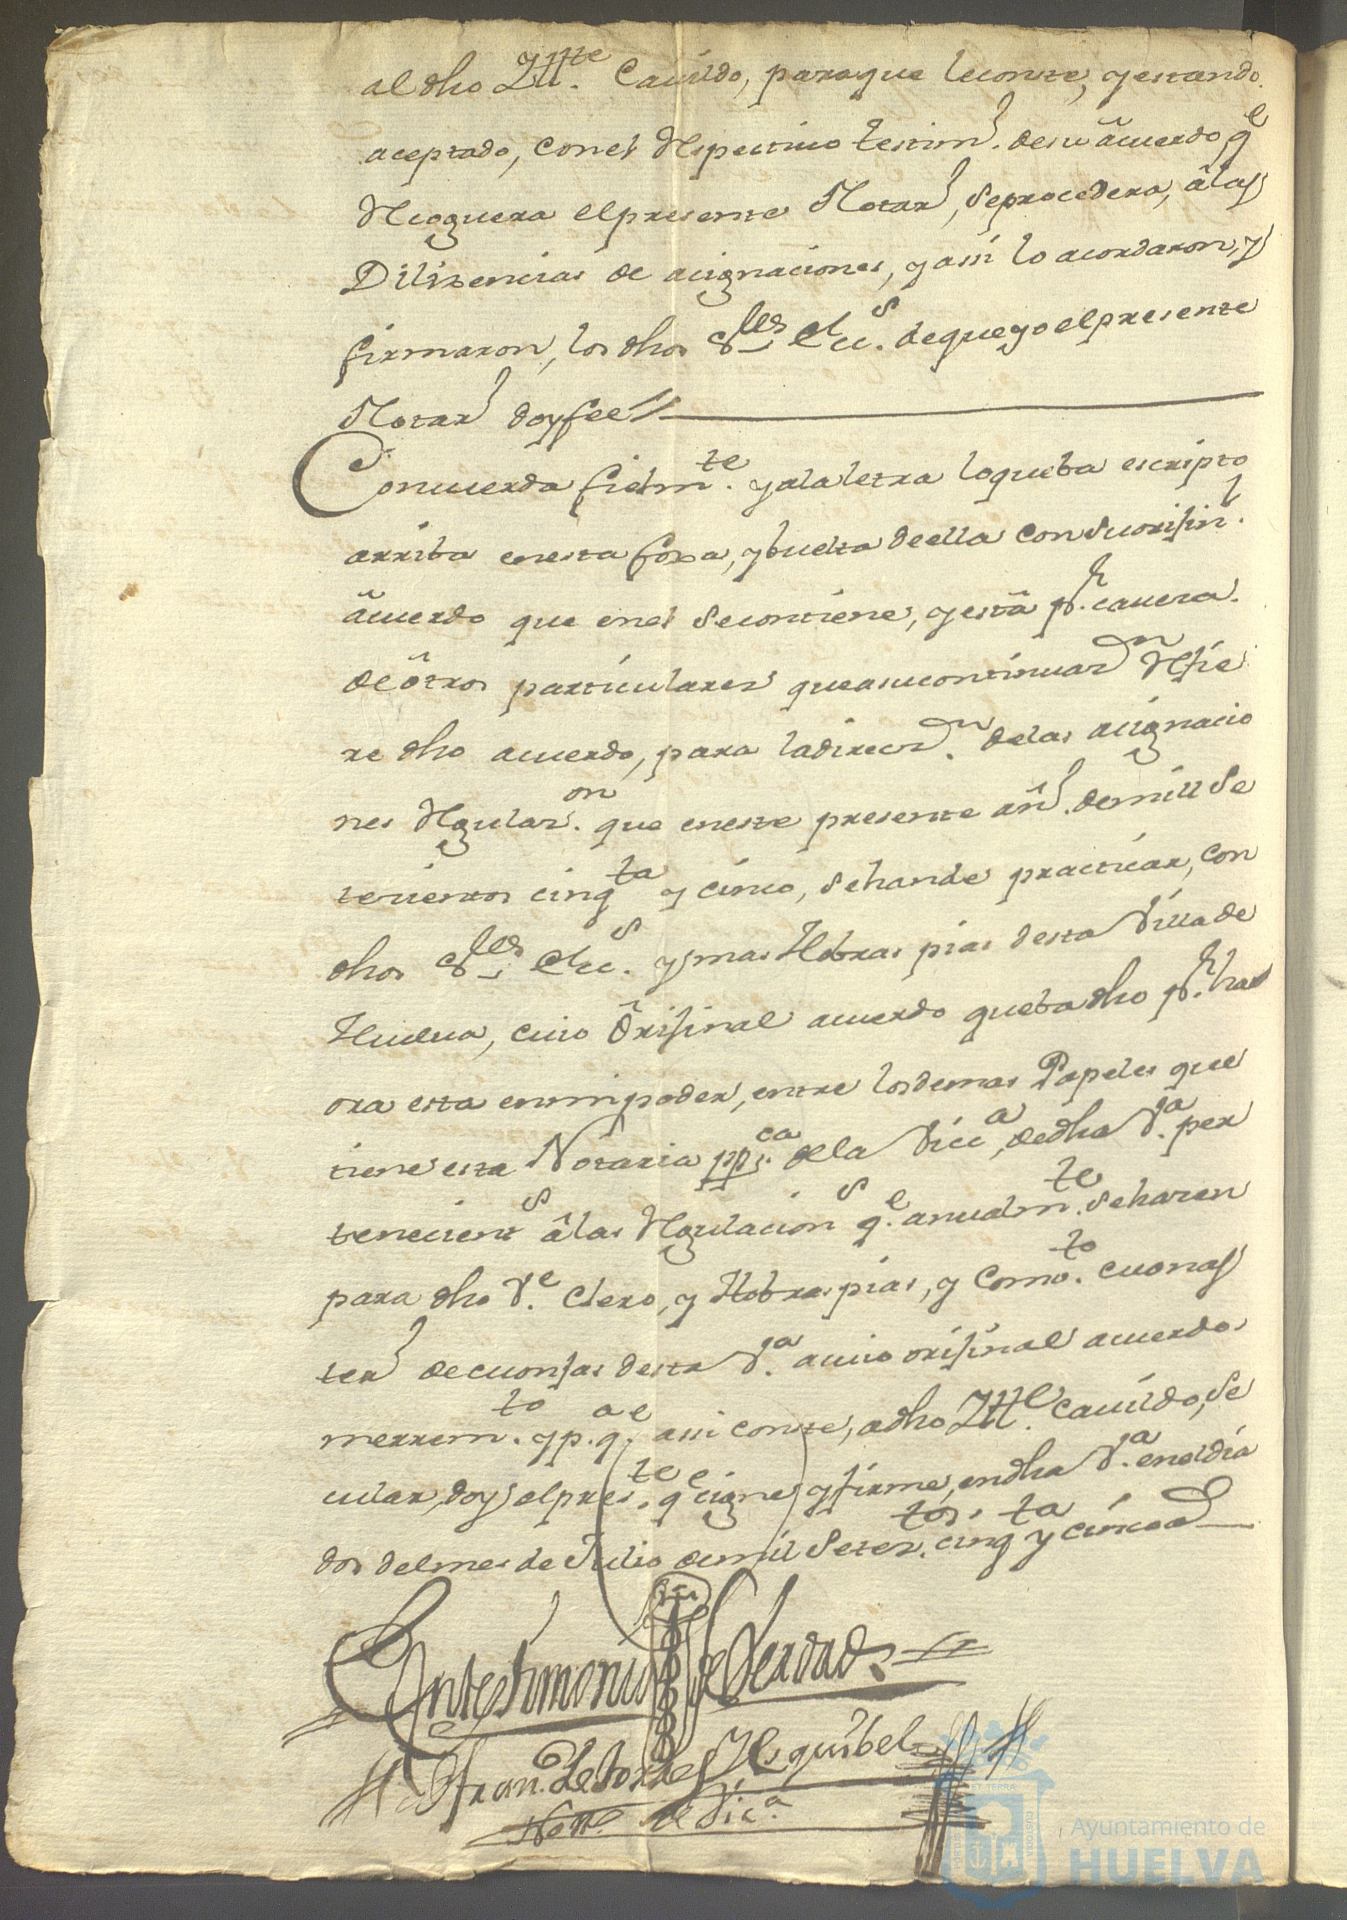 al dho Yltte. Cavildo, paraque leconste, y estando
aceptado, conel Respectivo testim.º desu acuerdo q.e
Recoguera elpresente Notar.º, Seprocedera, âlas
Dilixencias de acignaciones, y assi lo acordaron, y
firmaron, los dhos S.res Ecc.s dequeyo elpresente
Notar.º doyfee //
Concuerda fielm.te yalaletra loqueba escripto
arriba enesta foxa, ybuelta deella con Suorijin.l
âcuerdo que enel Secontiene, yestâ p.r cavera
deôtros particulares queasucontinuaz.on Refie
re dho acuerdo, para ladirecz.on delas acignacio
nes Regulaz.on que eneste presente añ.º demill Se
tecientos cinq.ta y cinco, Sehande practicar, con
dhos S.res Ecc.s ymas Hobras pias desta Villa de
Huelva, cuio Ôrijinal acuerdo queba dho p.r ha
ora esta enmipoder, entre losdemas Papeles que
tiene esta Notaria pp.ca dela Vicc.a, dedha V.a per
tenecient.s âlas Regulacion.s q.e anualm.te Seharen
para dho V.e Clero, y Hobras pias, y
ter.º decuonjas desta V.a acuio orijinal acuerdo
merrem.to yp.a q.e assi conste, adho Yltte. Cavildo, Se
cular, doy elpres.te q.e cigne, yfirme, endha V.a eneldia
dos delmes de Julio demil Setez.tos cinq.ta y cinco a
En testimonio de Verdad.
Fran.co de torres Y Esquibel
Nott.o de Vic.a
Ayuntamiento de
HUELVA